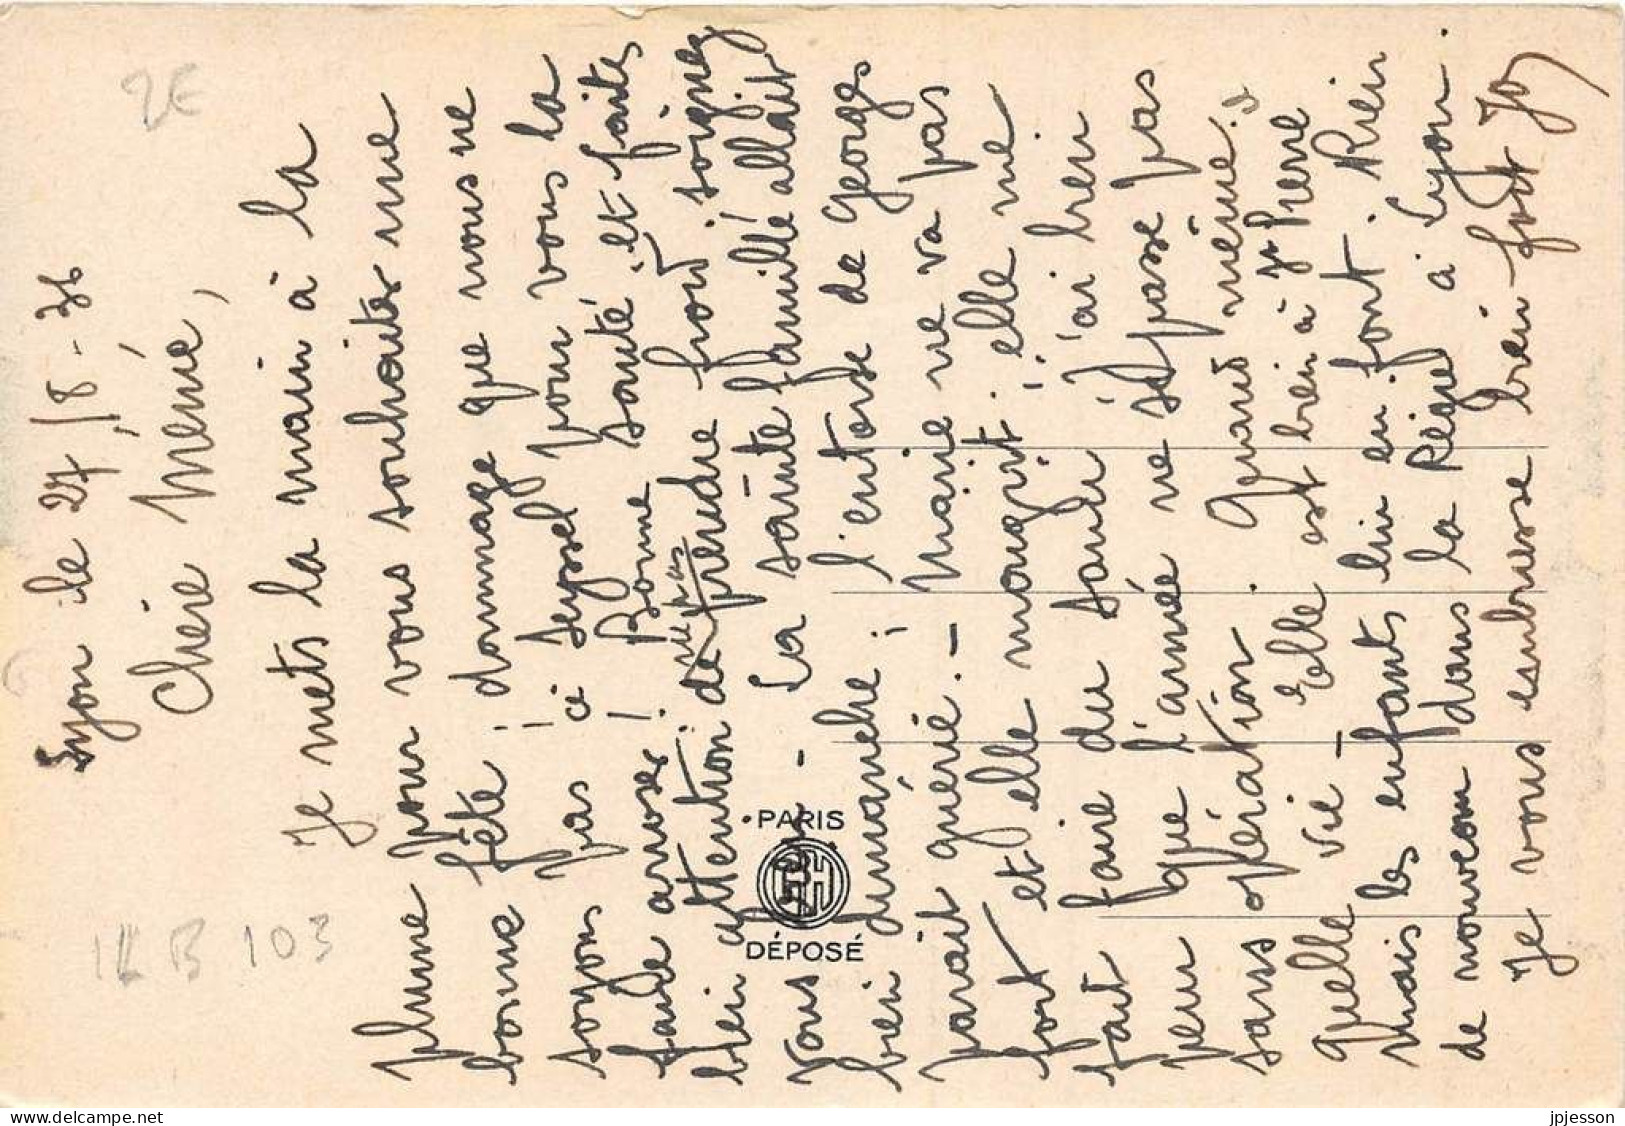 Lyon le 27/8-36
Chère Mémé,
Je mets la main à la
plume pour vous souhaiter une
bonne fête, dommage que nous ne
soyons pas à Seyssel pour vous la
faire arroser! Bonne santé, et faites
bien attention de ne pas prendre froid, soignez
vous - La sainte famille allait
bien dimanche; l'entorse de Georges
parait guérie. - Marie ne va pas
fort et elle maigrit; elle me
fait faire du souci, j'ai bien
peur que l'année ne se passe pas
sans opération. Quand même.
Quelle vie - Elle est bien à St Pierre
Mais les enfants lui en font. Rien
de nouveau dans la Région à Lyon.
Je vous embrasse bien fort Jo
PARIS
DÉPOSÉ
2€
B 103
www.delcampe.net
jpjesson